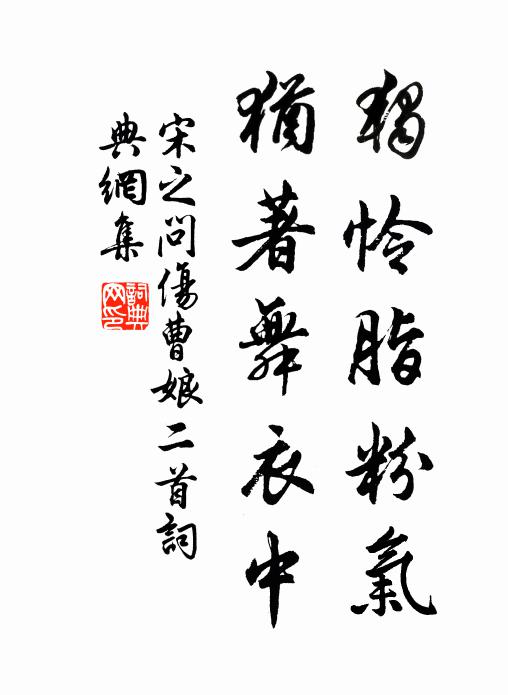 獨怜脂粉氣
猶著舞衣中
宋之問傷曹娘二首詞
典網集
詞典
网印